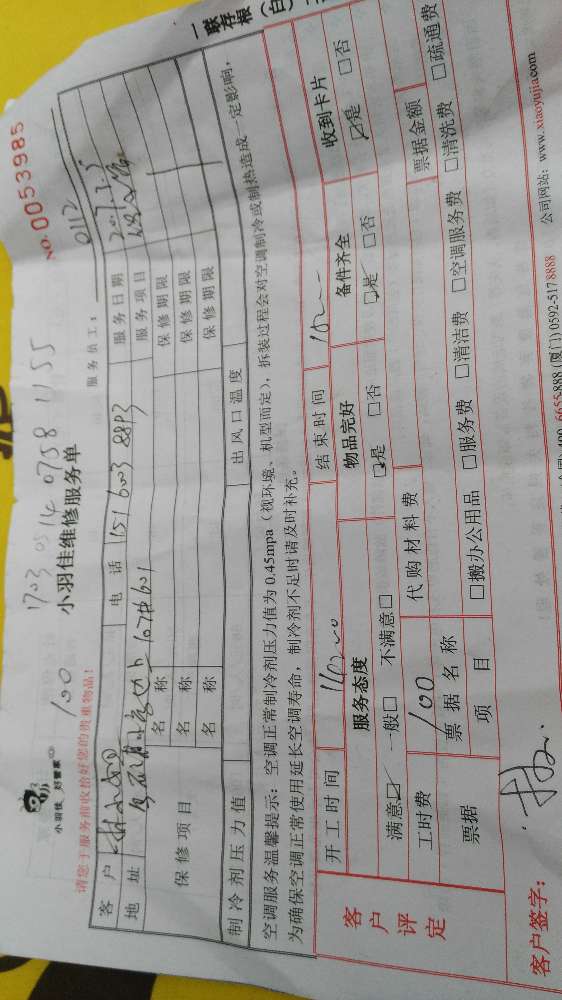 一联存根（白）
NO. 0053985
100 1703 0514 0758 1155
小羽佳 好管家
小羽佳维修服务单
请您于服务前收拾好您的贵重物品！
服务员工： 0112
客户
电话 151 6003 8893
服务日期
地址
107#601
服务项目
保修项目
名称
保修期限
名称
保修期限
名称
保修期限
制冷剂压力值
出风口温度
空调服务温馨提示：空调正常制冷剂压力值为0.45mpa（视环境、机型而定），拆装过程会对空调制冷或制热造成一定影响，
为确保空调正常使用延长空调寿命，制冷剂不足时请及时补充。
客户评定
开工时间
结束时间
服务态度
物品完好
备件齐全
收到卡片
满意☑ 一般□ 不满意□
☑是 □否
☑是 □否
☑是 □否
工时费 100
代购材料费
票据
票据名称
票据金额
项目
□搬办公用品 □服务费 □清洁费 □空调服务费 □清洗费 □疏通费
客户签字：
(厦门) 0592-517 8888
公司网站：www.xiaoyujia.com